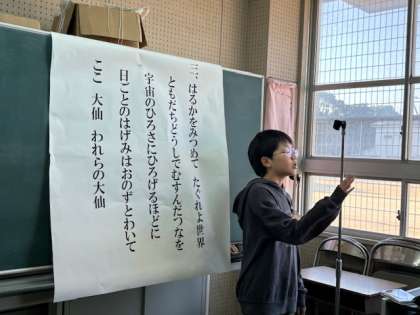 三、はるかをみつめて たぐれよ世界
ともだちどうしでむすんだつなを
宇宙のひろさにひろげるほどに
日ごとのはげみはおのずとわいて
ここ 大仙 われらの大仙